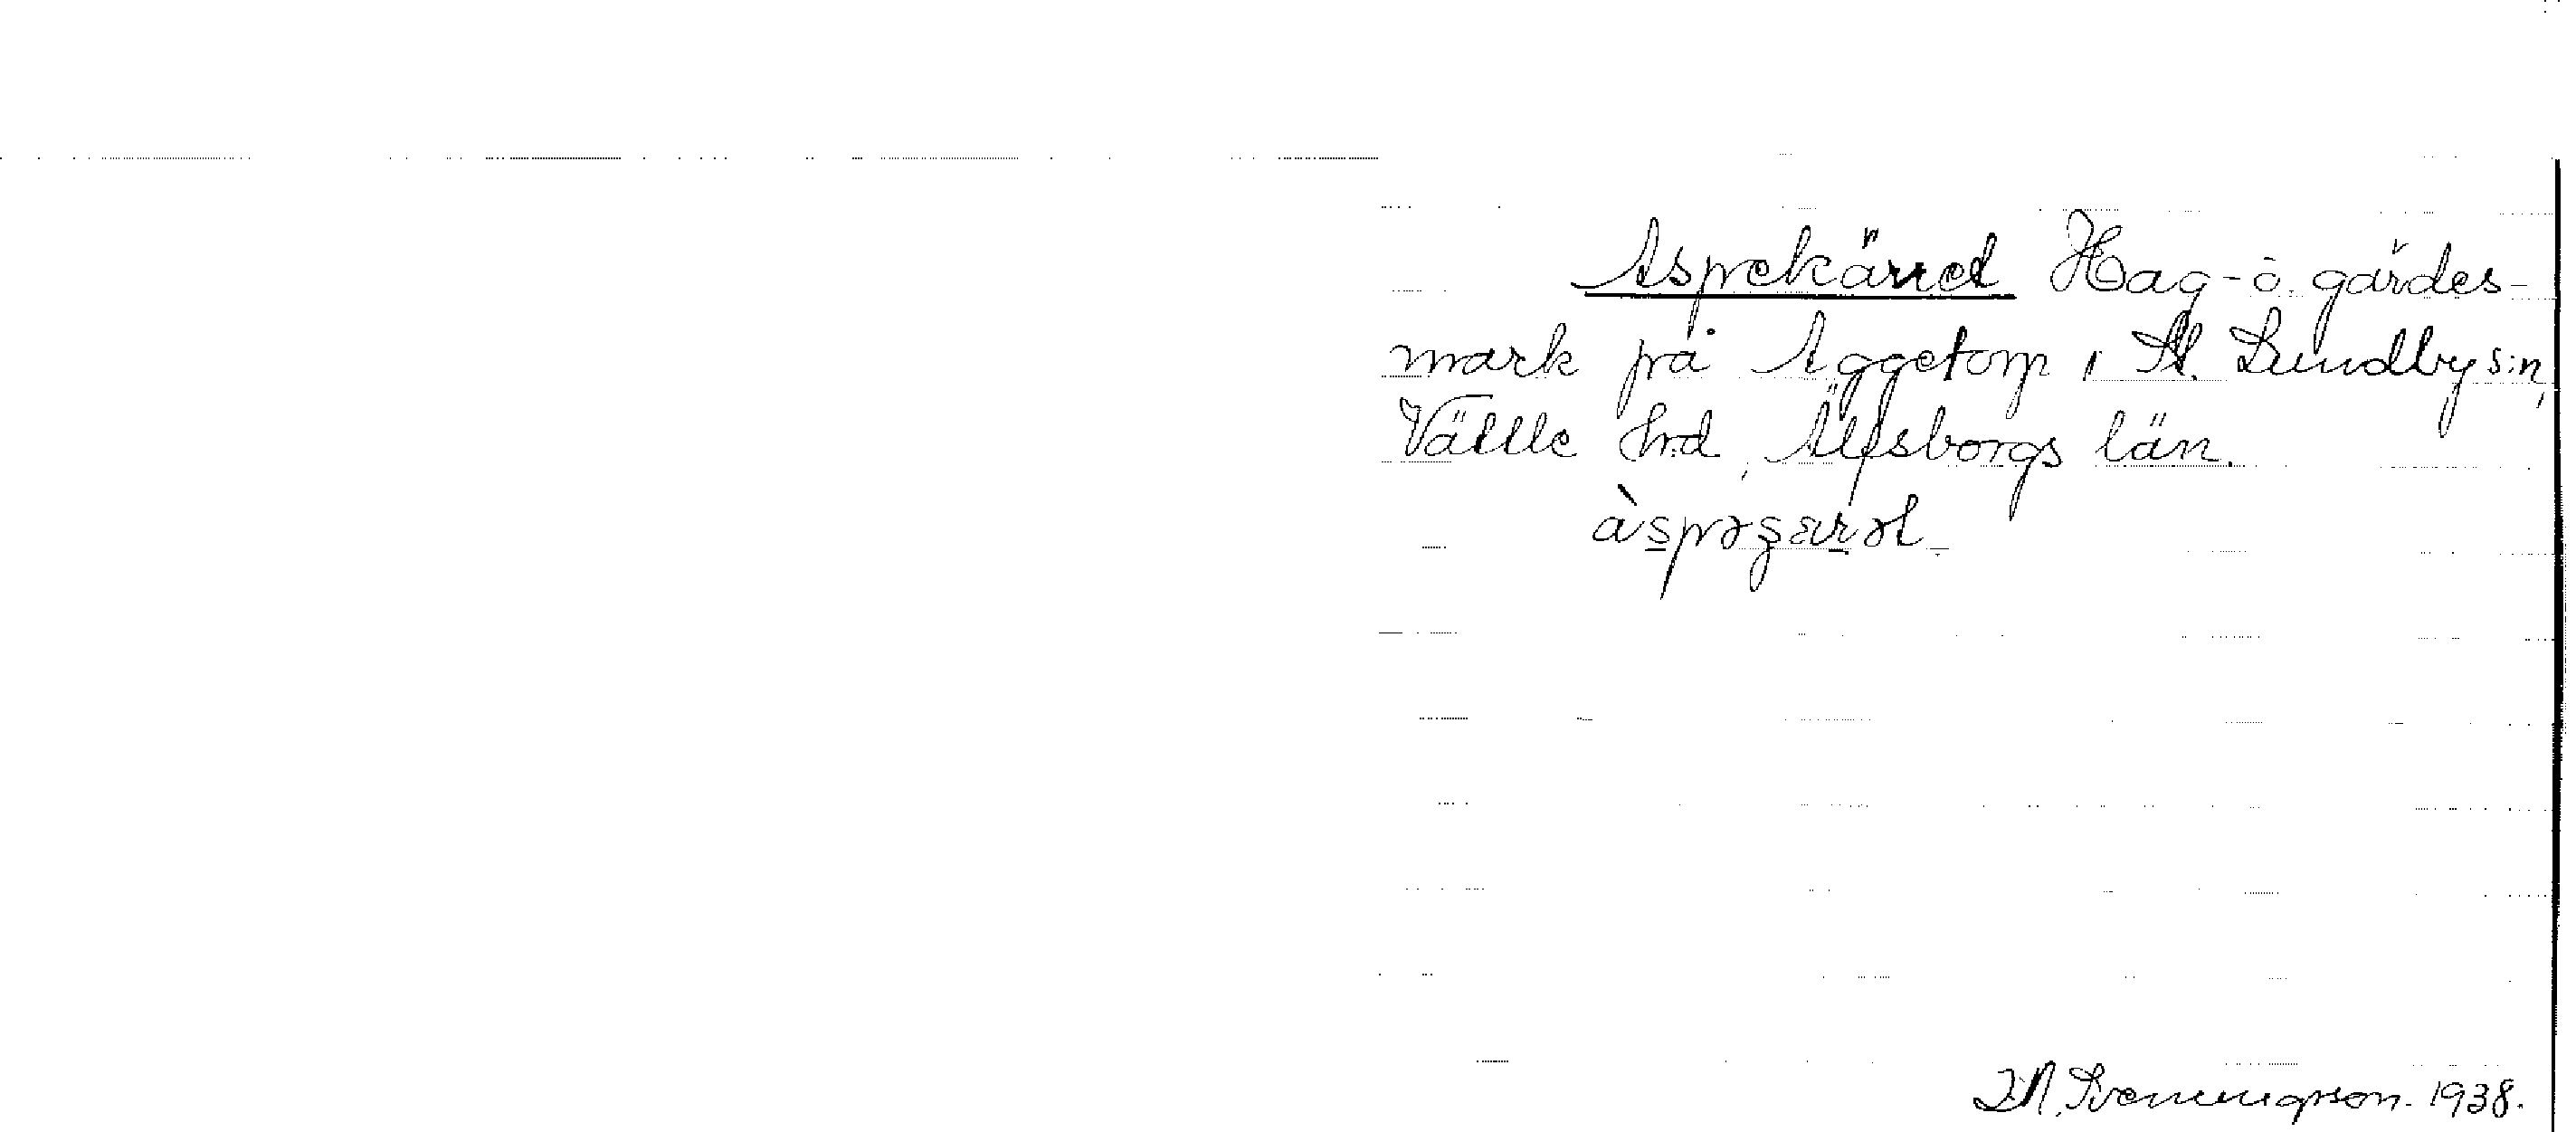 Aspekärret Hag- o. gärdes-
mark på Aggetorp i St. Lundby s:n,
Vättle hrd, Älfsborgs län.
àspəʂærət
Svenningsson. 1938.